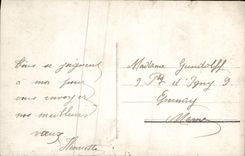 Tous se joignent
à moi pour
vous envoyer
nos meilleurs
vœux
Henriette
Madame Gundolff
9 Pl. d'Igny 9
Epernay
Marne